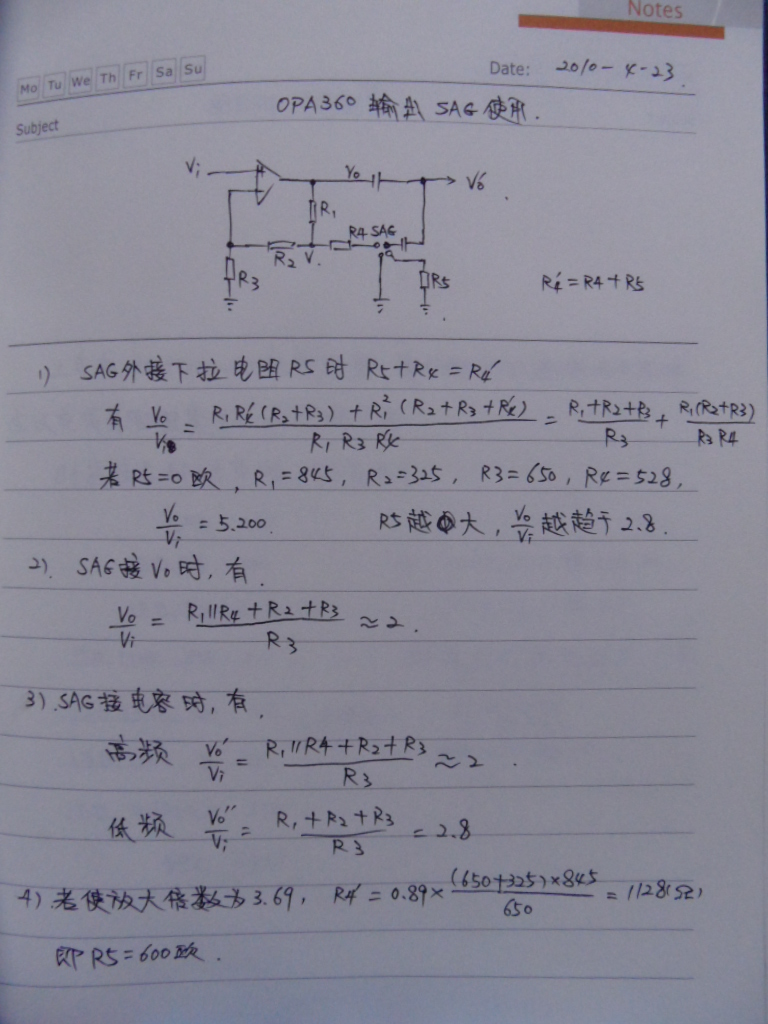 Notes
Mo Tu We Th Fr Sa Su
Date: 2010-4-23.
Subject
OPA360 输出 SAG 使用.
Vi
Vo
Vo'
R1
R4 SAG
R2 V.
R3
R5
R4' = R4 + R5
1) SAG外接下拉电阻R5时 R5+R4 = R4'
有 Vo/Vi = (R1R4'(R2+R3) + R1²(R2+R3+R4'))/(R1 R3 R4') = (R1+R2+R3)/R3 + R1(R2+R3)/(R3R4)
若R5=0欧, R1=845, R2=325, R3=650, R4=528,
Vo/Vi = 5.200. R5越大, Vo/Vi 越趋于2.8.
2). SAG接Vo时, 有.
Vo/Vi = (R1//R4+R2+R3)/R3 ≈ 2.
3). SAG接电容时, 有.
高频 Vo'/Vi = (R1//R4+R2+R3)/R3 ≈ 2.
低频 Vo''/Vi = (R1+R2+R3)/R3 = 2.8
4). 若使放大倍数为3.69, R4' = 0.89×((650+325)×845)/650 = 1128(Ω)
即R5=600欧.